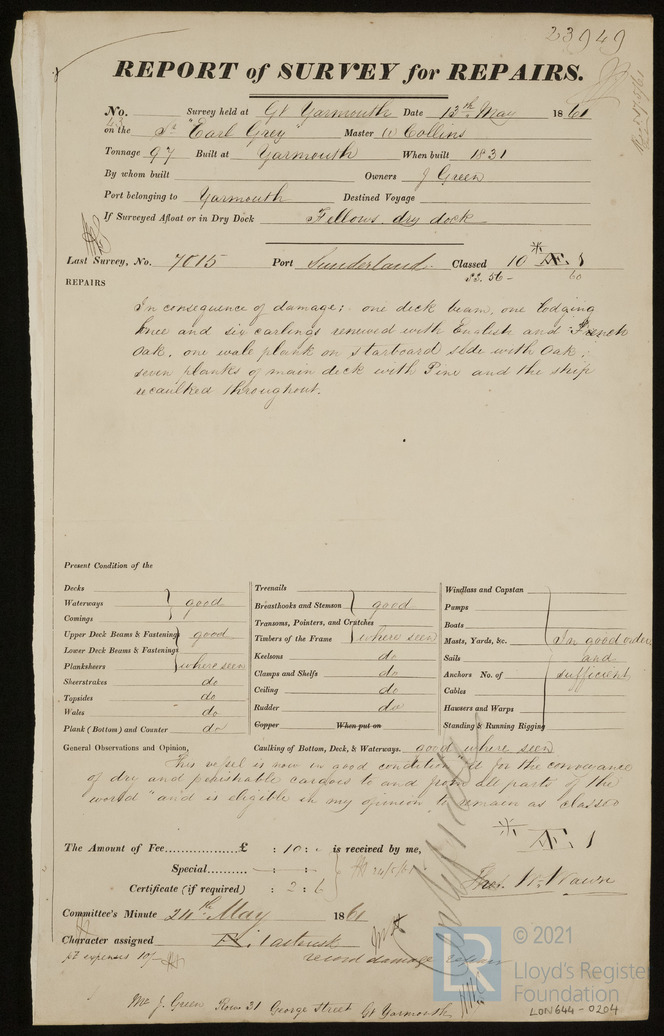 23949
REPORT of SURVEY for REPAIRS.
No. 43 Survey held at Gt Yarmouth Date 13th May 1861
on the Sr "Earl Grey" Master W Collins
Tonnage 97 Built at Yarmouth When built 1831
By whom built Owners J Green
Port belonging to Yarmouth Destined Voyage
If Surveyed Afloat or in Dry Dock Fellows dry dock
Last Survey, No. 7015 Port Sunderland Classed 10 * Æ 1
S.S. 56 - 60
REPAIRS
In consequence of damage; one deck beam, one lodging
knee and six carlings renewed with English and French
Oak, one wale plank on starboard side with Oak;
seven planks of main deck with Pine and the ship
recaulked throughout.
Present Condition of the
Decks
Waterways good
Comings
Upper Deck Beams & Fastenings good
Lower Deck Beams & Fastenings
Planksheers where seen
Sheerstrakes do
Topsides do
Wales do
Plank (Bottom) and Counter do
Treenails
Breasthooks and Stemson good
Transoms, Pointers, and Crutches
Timbers of the Frame where seen
Keelsons do
Clamps and Shelfs do
Ceiling do
Rudder do
Copper When put on
Windlass and Capstan
Pumps
Boats
Masts, Yards, &c. In good order
Sails and
Anchors No. of sufficient
Cables
Hawsers and Warps
Standing & Running Rigging
General Observations and Opinion, Caulking of Bottom, Deck, & Waterways. good where seen
This vessel is now in good condition "fit for the conveyance
of dry and perishable cargoes to and from all parts of the
world" and is eligible in my opinion to remain as classed
* Æ 1
The Amount of Fee £ : 10 : - is received by me,
Special - : - : -
24/5/61
Certificate (if required) : 2 : 6
Thos. W. Wawn
Committee's Minute 24th May 1861
Character assigned Æ. 1 asterisk
pd expenses 10/-
record damage repairs
Mr J. Green Row 31 George Street Gt Yarmouth
LR
© 2021
Lloyd's Register
Foundation
LON644-0204